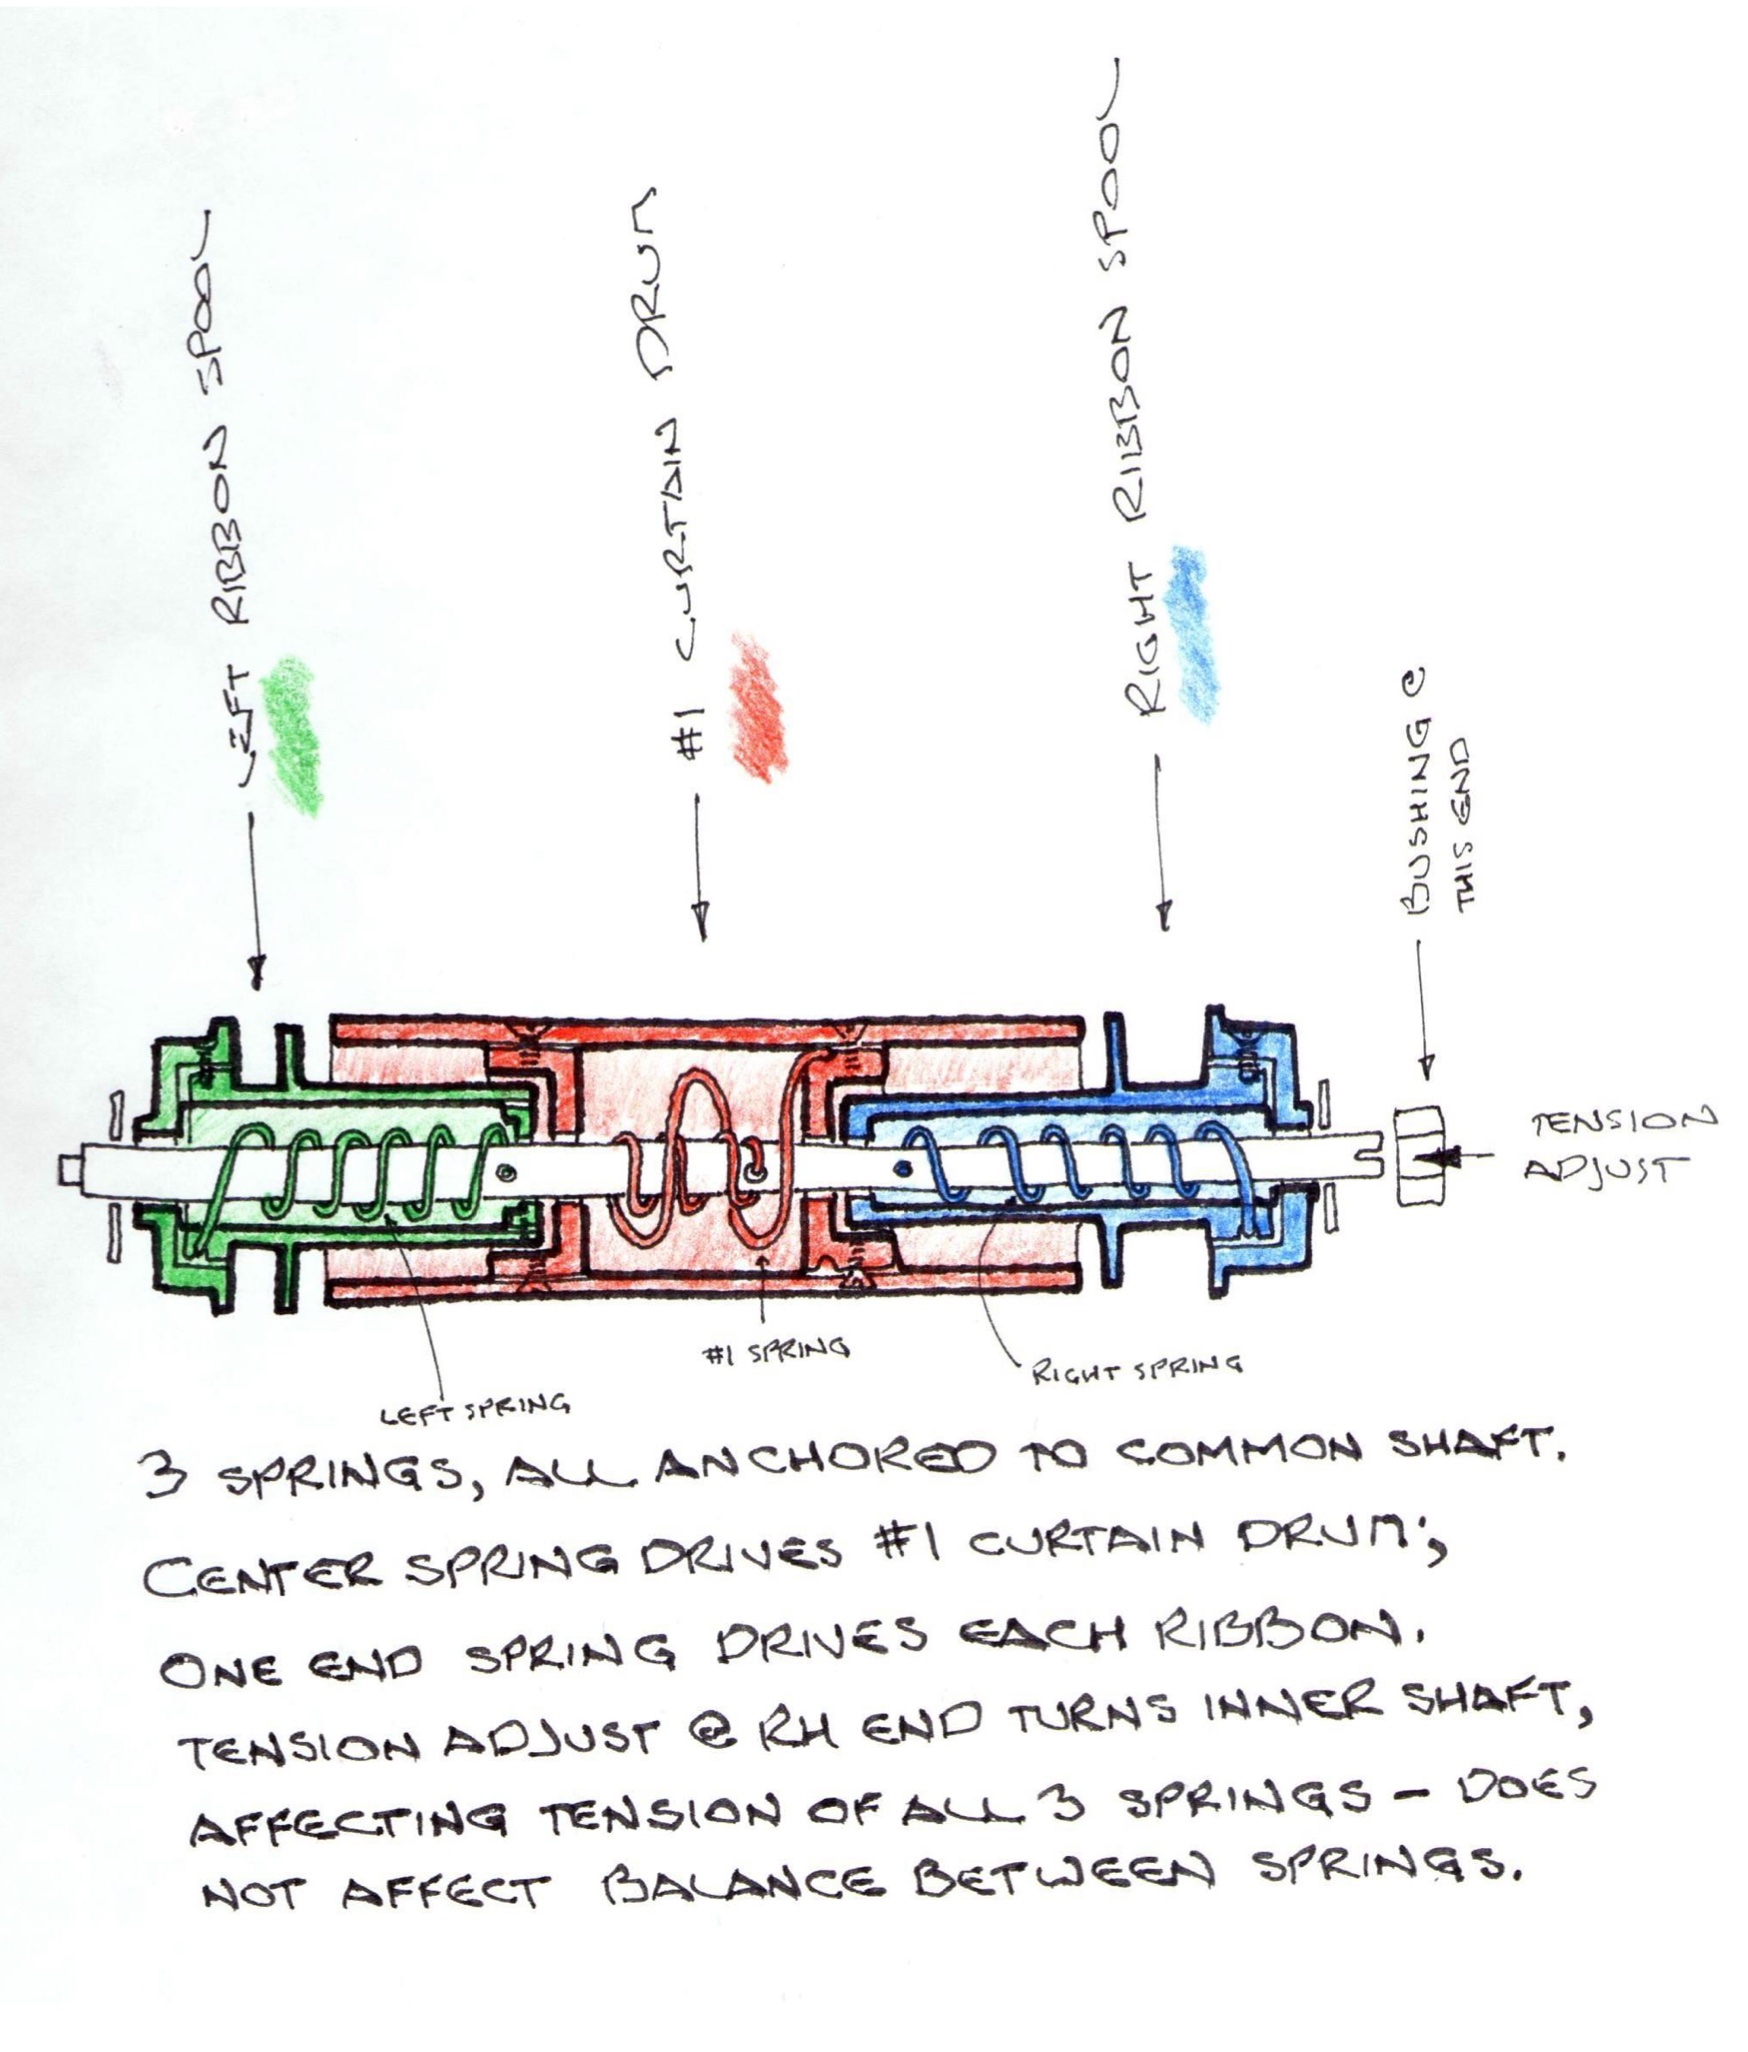 LEFT RIBBON SPOOL
#1 CURTAIN DRUM
RIGHT RIBBON SPOOL
BUSHING @
THIS END
TENSION
ADJUST
#1 SPRING
RIGHT SPRING
LEFT SPRING
3 SPRINGS, ALL ANCHORED TO COMMON SHAFT.
CENTER SPRING DRIVES #1 CURTAIN DRUM;
ONE END SPRING DRIVES EACH RIBBON.
TENSION ADJUST @ RH END TURNS INNER SHAFT,
AFFECTING TENSION OF ALL 3 SPRINGS - DOES
NOT AFFECT BALANCE BETWEEN SPRINGS.